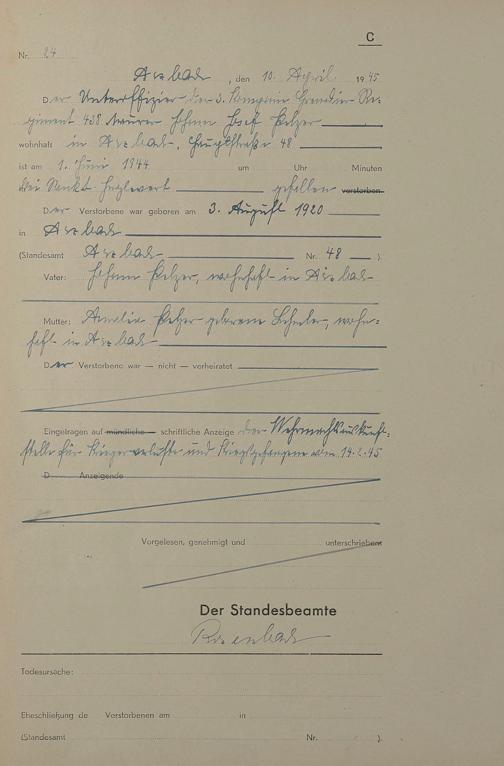 C
Nr. 24
Asbach, den 10. April 1945
Der Unteroffizier der 3. Kompanie Grenadier Re-
giment 438 Maurer Johann Josef Pelzer
wohnhaft in Asbach, Hauptstraße 48
ist am 1. Juni 1944 um Uhr Minuten
bei gefallen verstorben.
Der Verstorbene war geboren am 3. August 1920
in Asbach
(Standesamt Asbach Nr. 48 ).
Vater: Johann Pelzer, wohnhaft in Asbach
Mutter: Amalia Pelzer geborene wohn-
haft in Asbach
Der Verstorbene war — nicht — verheiratet
Eingetragen auf mündliche — schriftliche Anzeige der Wehrmachtauskunft-
stelle für Kriegerverluste und Kriegsgefangene vom 14.2.45
D Anzeigende
Vorgelesen, genehmigt und unterschrieben
Der Standesbeamte
Todesursache:
Eheschließung de Verstorbenen am in
(Standesamt Nr. ).